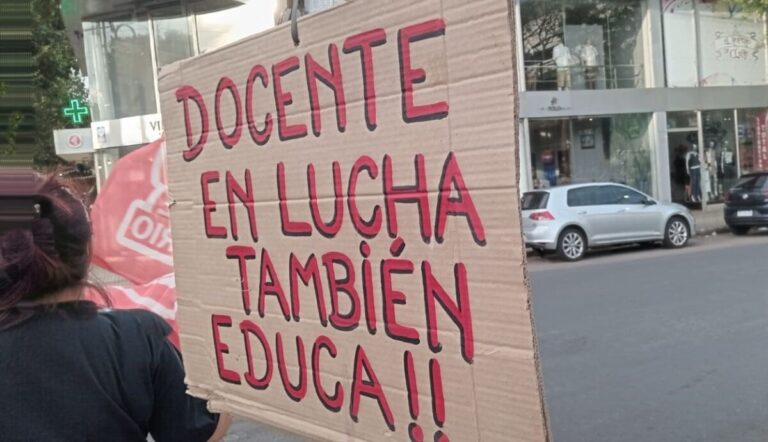 DOCENTE
EN LUCHA
TAMBIÉN
EDUCA!!